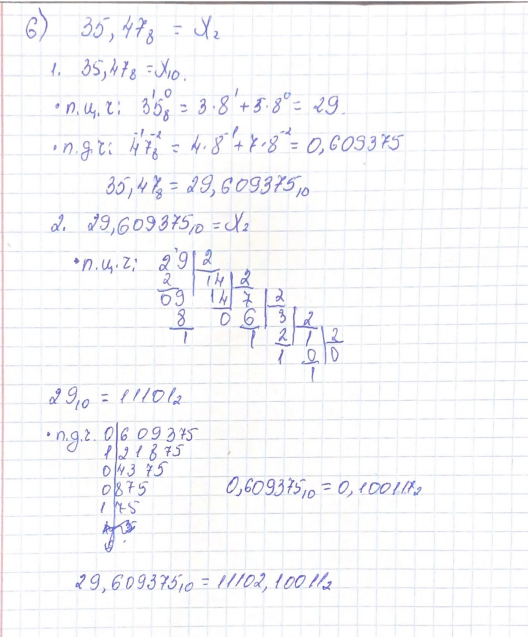 б) 35,47₈ = X₂
1. 35,47₈ = X₁₀.
• п.ц.ч: 3¹5⁰₈ = 3·8¹ + 5·8⁰ = 29.
• п.д.ч: 4⁻¹7⁻²₈ = 4·8⁻¹ + 7·8⁻² = 0,609375
35,47₈ = 29,609375₁₀
2. 29,609375₁₀ = X₂
• п.ц.ч: 29 | 2
2 | 14 | 2
09 | 14 | 7 | 2
8 0 6 | 3 | 2
1 1 2 | 1 | 2
1 0 | 0
1
29₁₀ = 11101₂
• п.д.ч. 0|609375
1|21875
0|4375
0|875
1|75
0,609375₁₀ = 0,10011₂
29,609375₁₀ = 11102,10011₂